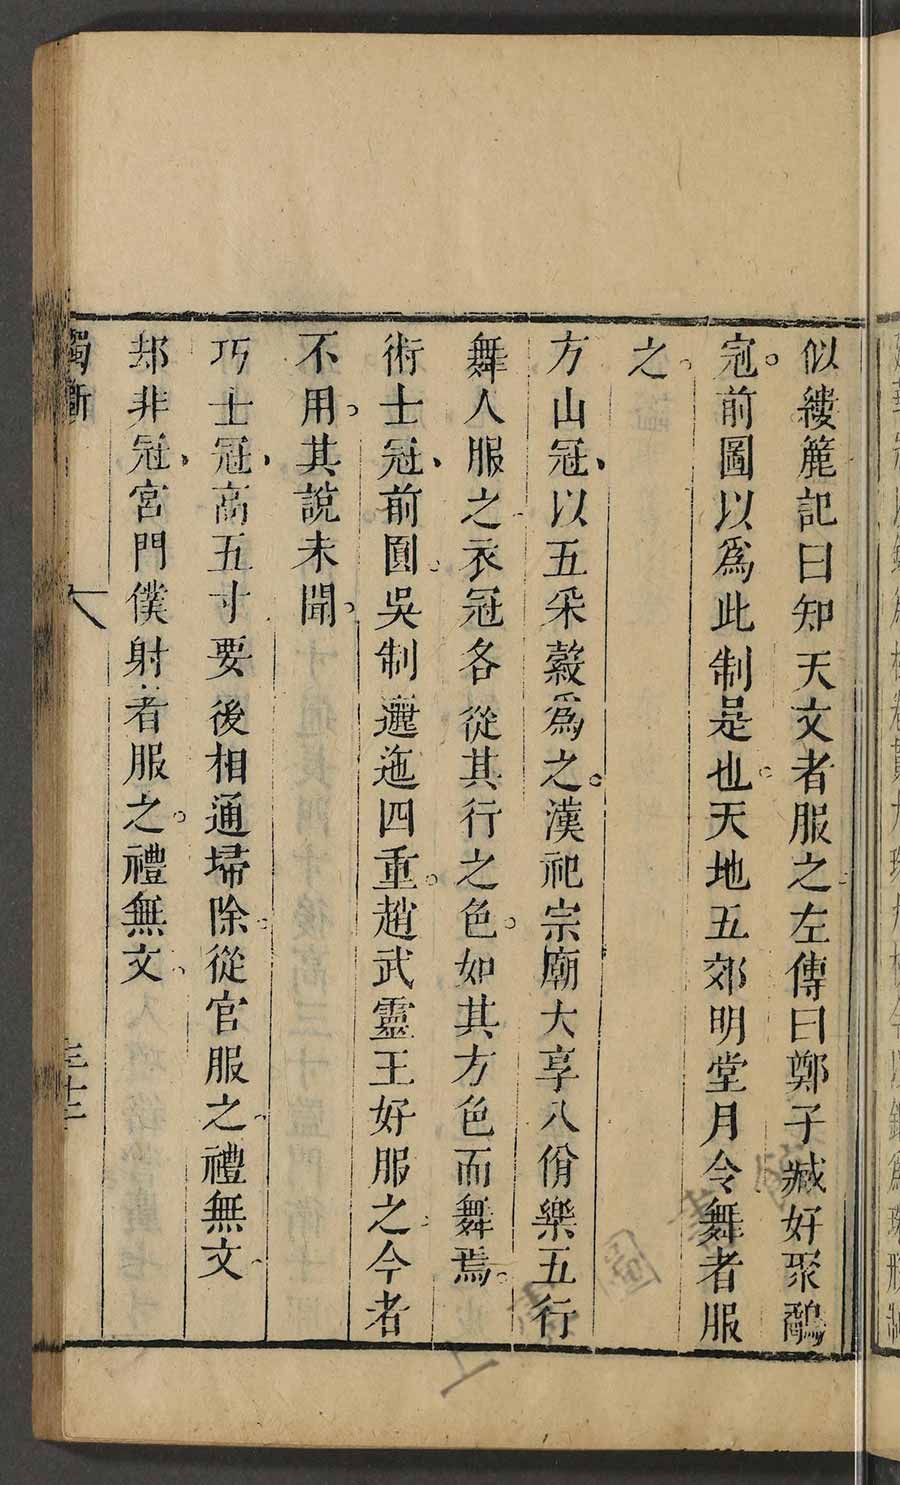 似縷簏記曰知天文者服之左傳曰鄭子臧好聚鷸
冠前圖以爲此制是也天地五郊明堂月令舞者服
之
方山冠以五采縠爲之漢祀宗廟大享八佾樂五行
舞人服之衣冠各從其行之色如其方色而舞焉
術士冠前圓吳制邐迤四重趙武靈王好服之今者
不用其說未聞
巧士冠高五寸要後相通埽除從官服之禮無文
却非冠宮門僕射者服之禮無文
獨斷